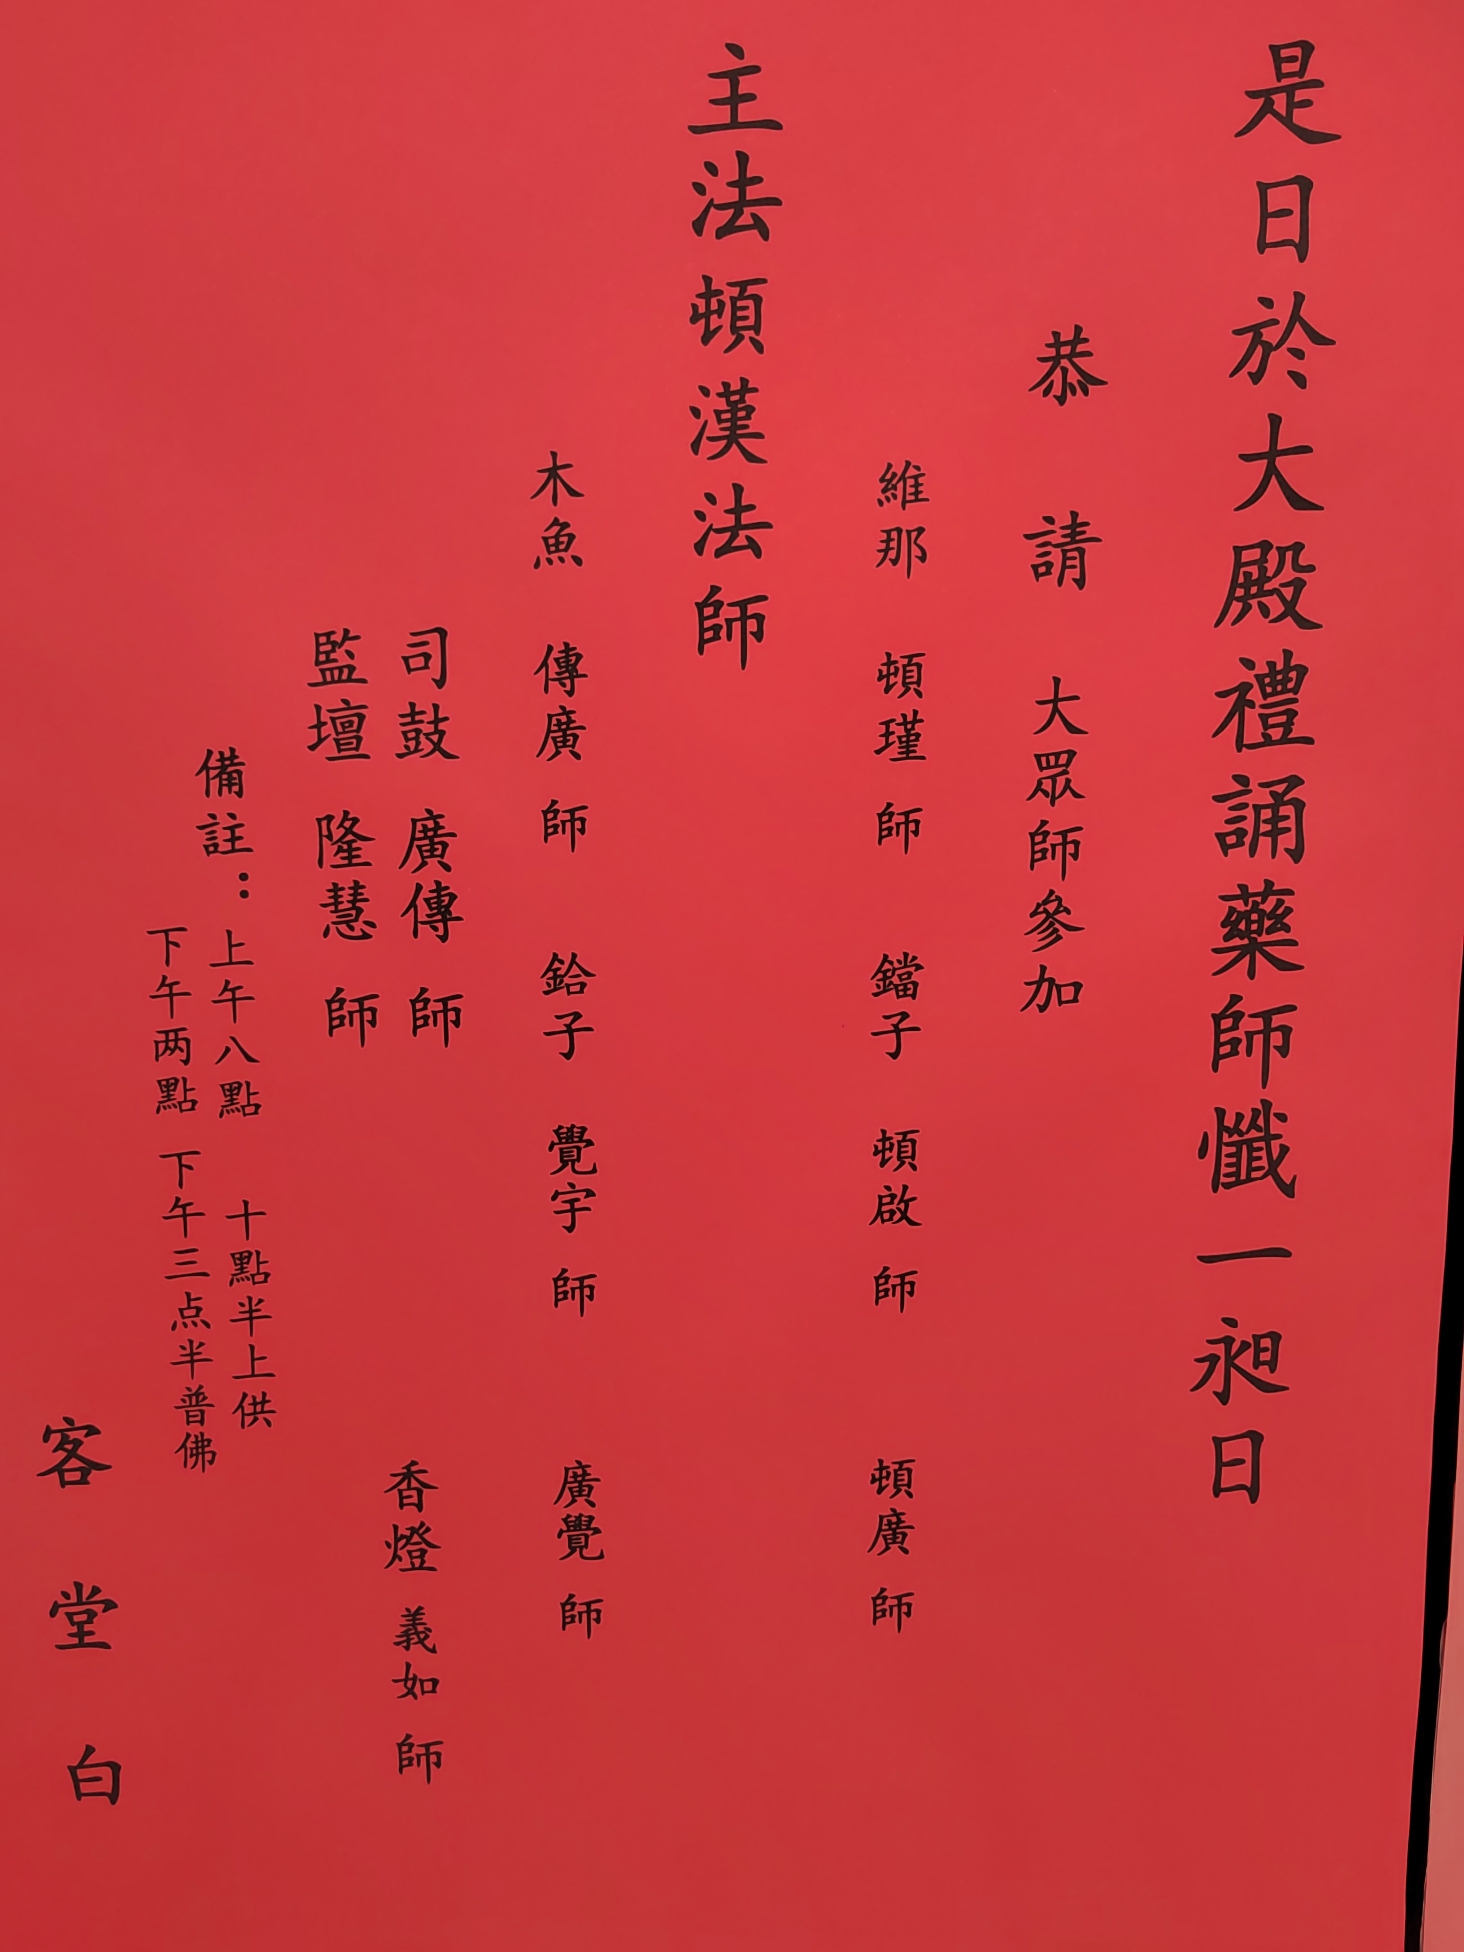 是日於大殿禮誦藥師懺一永日
恭請 大眾師參加
維那 頓瑾 師 鐺子 頓啟 師 頓廣 師
主法頓漢法師
木魚 傳廣 師 鉿子 覺宇 師 廣覺 師
司鼓 廣傳 師 香燈 義如 師
監壇 隆慧 師
備註：上午八點 十點半上供
下午两點 下午三点半普佛
客堂白